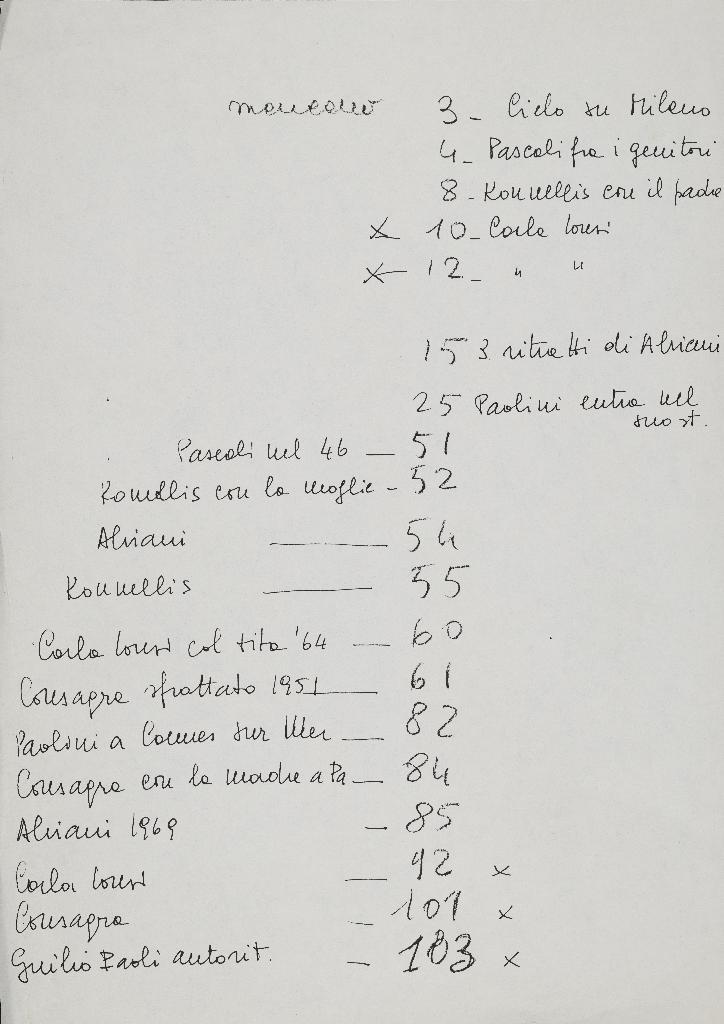 mancano 3 - Cielo su Milano
4 - Pascali fra i genitori
8 - Kounellis con il padre
x 10 - Carla Lonzi
x 12 - " "
15 3 ritratti di Alviani
25 Paolini entra nel
suo st.
Pascali nel 46 — 51
Kounellis con la moglie - 52
Alviani — 54
Kounellis — 55
Carla Lonzi col tita '64 — 60
Consagra sfrattato 1951 — 61
Paolini a Cannes sur Mer — 82
Consagra con la madre a Pa — 84
Alviani 1969 — 85
Carla Lonzi — 92 x
Consagra — 101 x
Giulio Paoli autorit. — 103 x